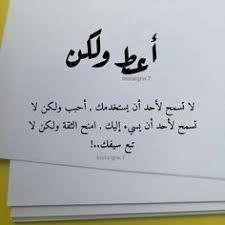 أعط ولكن
لا تسمح لأحد أن يستخدمك , أحبب ولكن لا
تسمح لأحد أن يسيء إليك , امنح الثقة ولكن لا
تبع سيفك..!